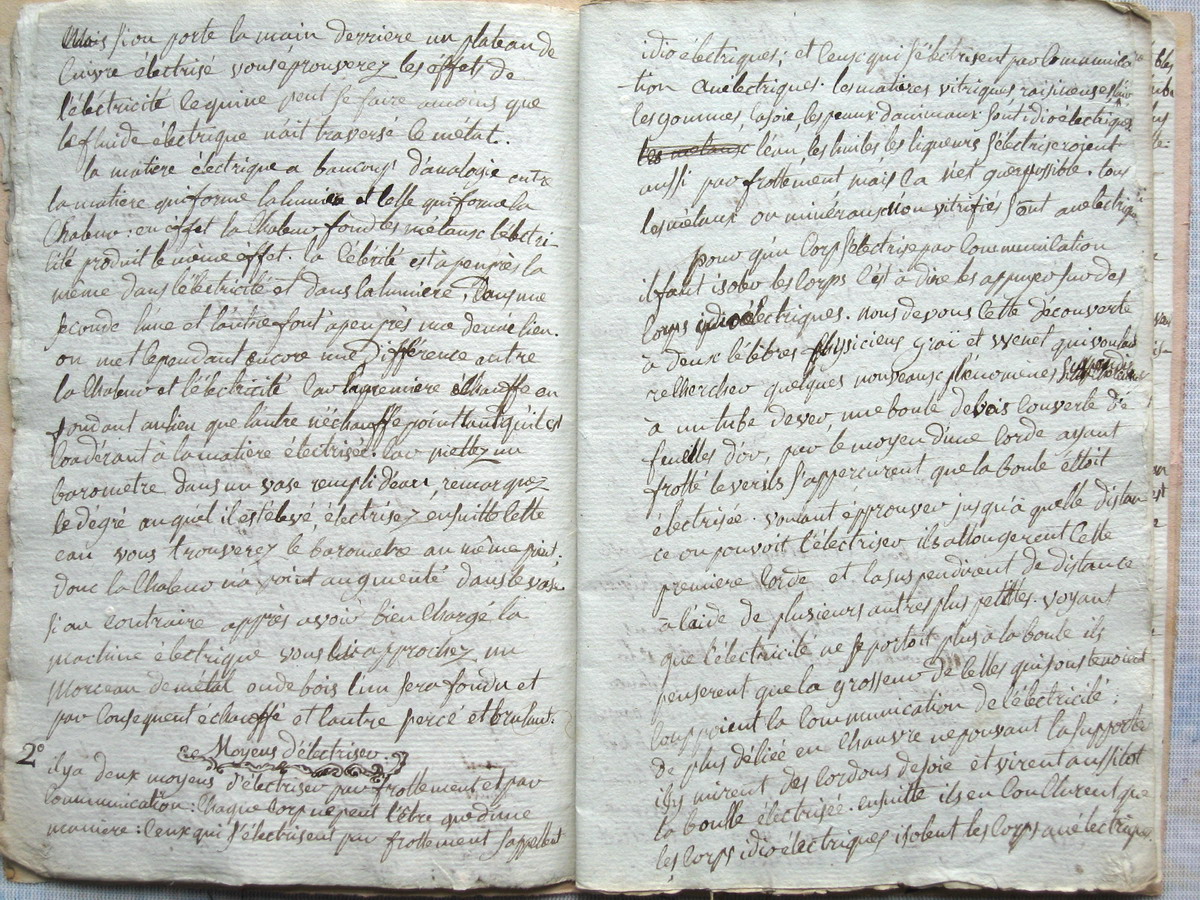 Mais si on porte la main derriere un plateau de
Cuivre électrisé vous éprouverez les effets de
l'éléctricité ce qui ne peut se faire amoins que
le fluide électrique nait traversé le métal.
la matière électrique a baucoup d'analogie entre
la matière qui forme la lumiere et celle qui forme la
Chaleur: en effet la Chaleur fond les métaux l'électri-
cité produit le même éffet. la Célérité est apeuprès la
même dans l'électricité et dans la lumiere, Dans une
seconde l'une et l'autre font apeuprès une demie lieu.
on met cependant encore une Différence entre
la Chaleur et l'électricité Car la premiere échauffe en
fondant aulieu que l'autre n'échauffe point tant qu'il est
à la matière électrisée. Car mettez un
baromètre dans un vase rempli d'eau, remarquez
le dégré auquel il est élevé, électrisez ensuitte Cette
eau vous trouverez le barometre au même point.
donc la Chaleur n'a point augmenté dans le vase
si au Contraire apprès avoir bien Chargé la
machine électrique vous lui approchez un
morceau de métal ou de bois l'un sera fondu et
par Consequent échauffé et l'autre percé et brulant.
2° Moyens d'électriser.
il y a deux moyens d'électriser par frottement et par
Communication: Chaque Corp ne peut l'être que d'une
maniere: Ceux qui s'électrisent par frottement s'appellent
idioélectriques; et Ceux qui s'électrisent par Communica-
tion anélectriques. les matières vitriques raisineuses
les gommes, la soie, les peaux d'animaux sont idioélectriques
les métaux l'eau, les huiles les liqueurs s'électriseroient
aussi par frottement mais Ca n'est guere possible. tous
les métaux ou minéraux non vitrifiés sont anélectriques
pour qu'un Corp s'électrise par Communication
il faut isoler les Corps C'est à dire les appuyer sur des
Corps idioélectriques. nous devons Cette découverte
à deux Célèbres physiciens graï et wenet qui voulant
rechercher quelques nouveaux phénomènes suspendirent
à un tube de ver, une boule de bois Couverte de
feuilles d'or, par le moyen d'une Corde ayant
frotté le ver ils s'apperçurent que la boule étoit
électrisée. voulant épprouver jusqu'à quelle distan
ce on pouvoit l'électriser ils allongerent Cette
premiere Corde et la suspendirent de distance
à l'aide de plusieurs autres plus petittes. voyant
que l'électricité ne se portoit plus à la boule ils
penserent que la grosseur de Celles qui soustenoient
Couppoient la Communication de l'électricité.
de plus déliée en Chanvre ne pouvant la supporter
ils y mirent des Cordons de soie et virent aussitot
la boulle électrisée. ensuitte ils en Conclurent que
les Corps idioélectriques isolent les Corps anélectriques.